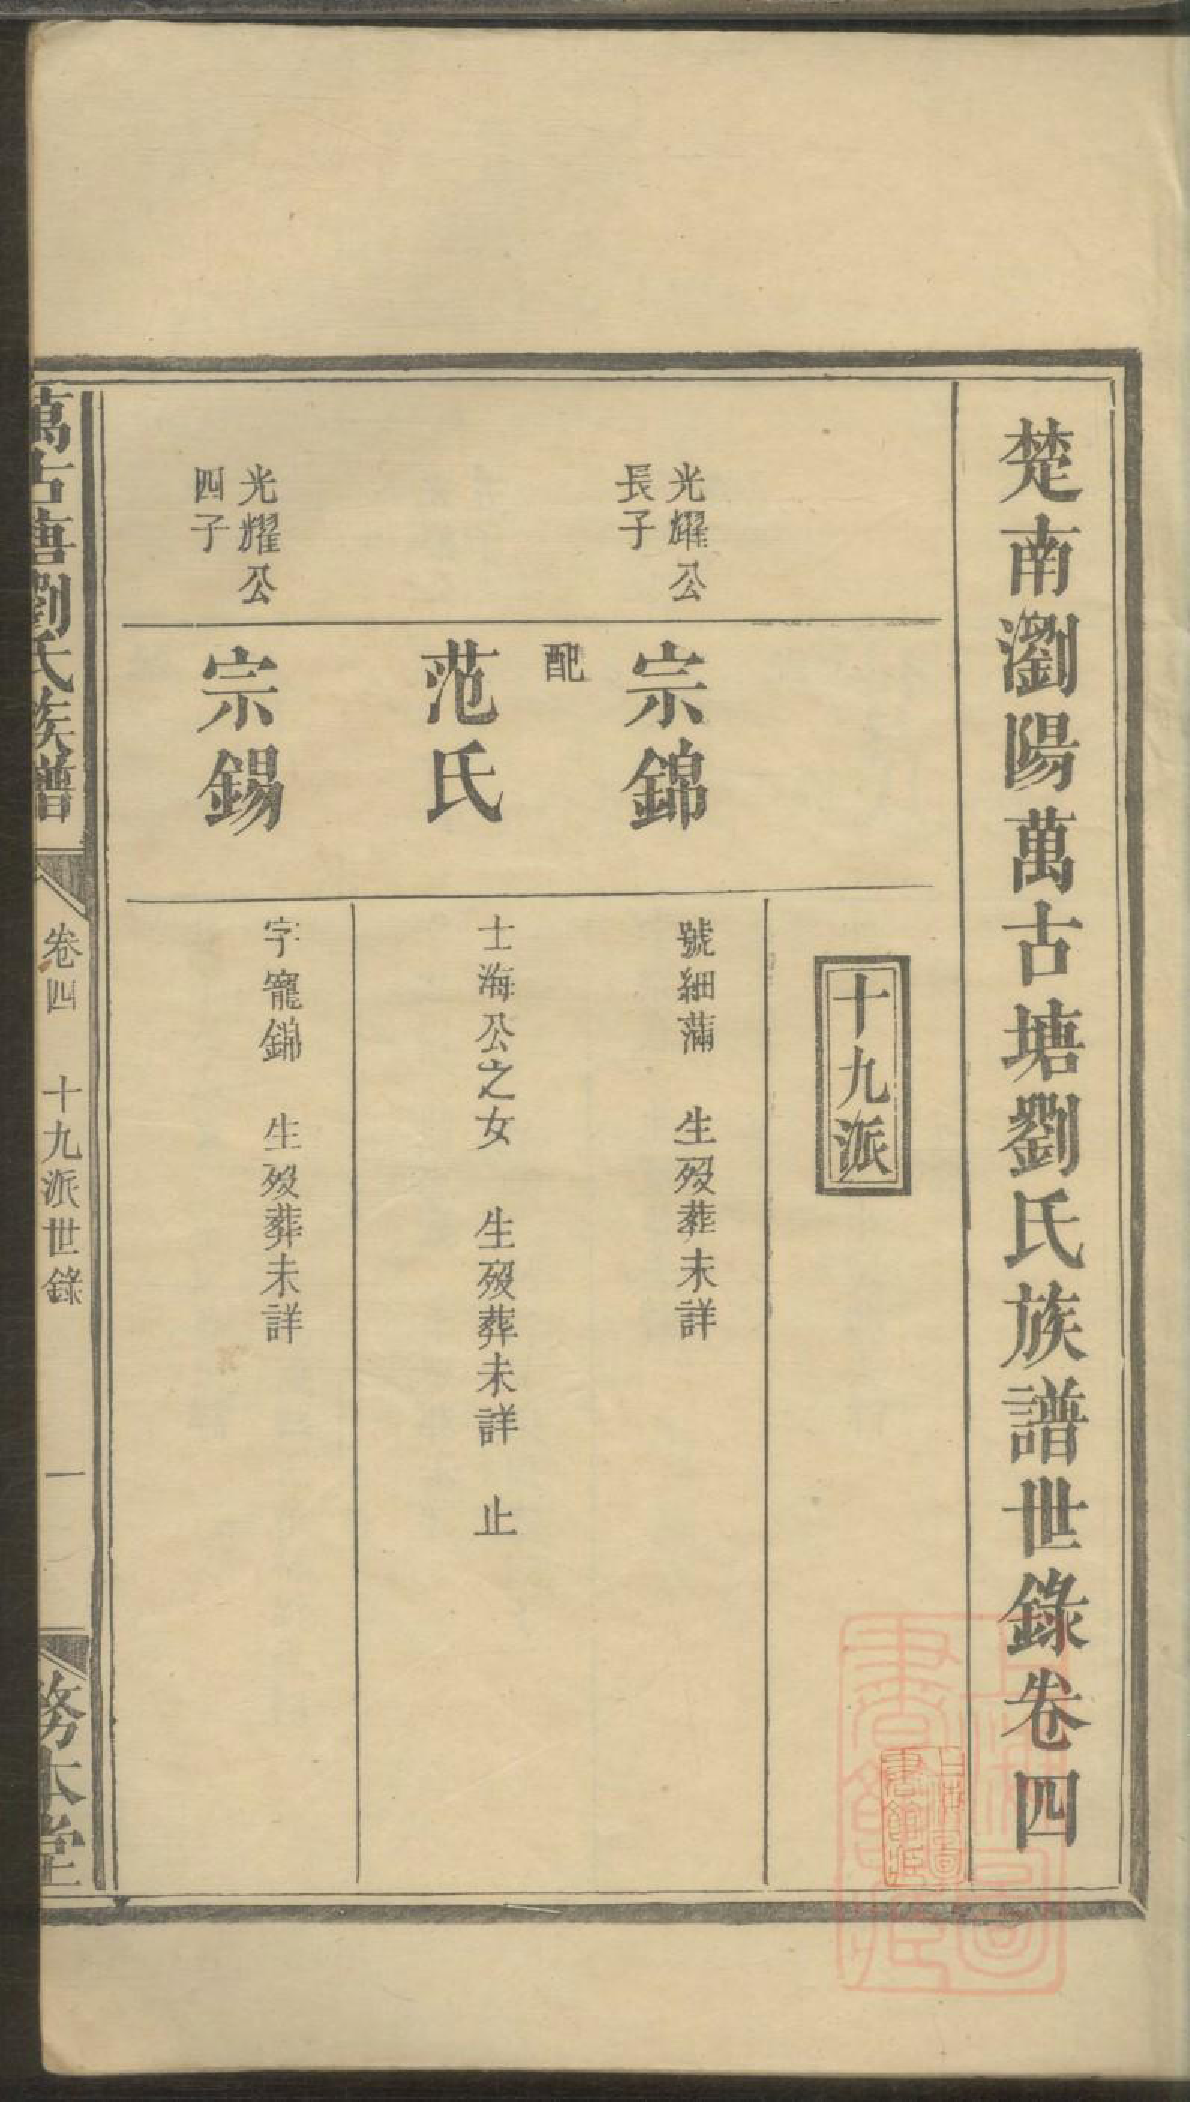 楚南瀏陽萬古塘劉氏族譜世錄卷四
十九派
光耀公
長子
宗錦
號細滿　生歿葬未詳
配
范氏
士海公之女　生歿葬未詳　止
光耀公
四子
宗錫
字寵錦　生歿葬未詳
萬古塘劉氏族譜
卷四　十九派世錄
一
務本堂
上海圖書館藏